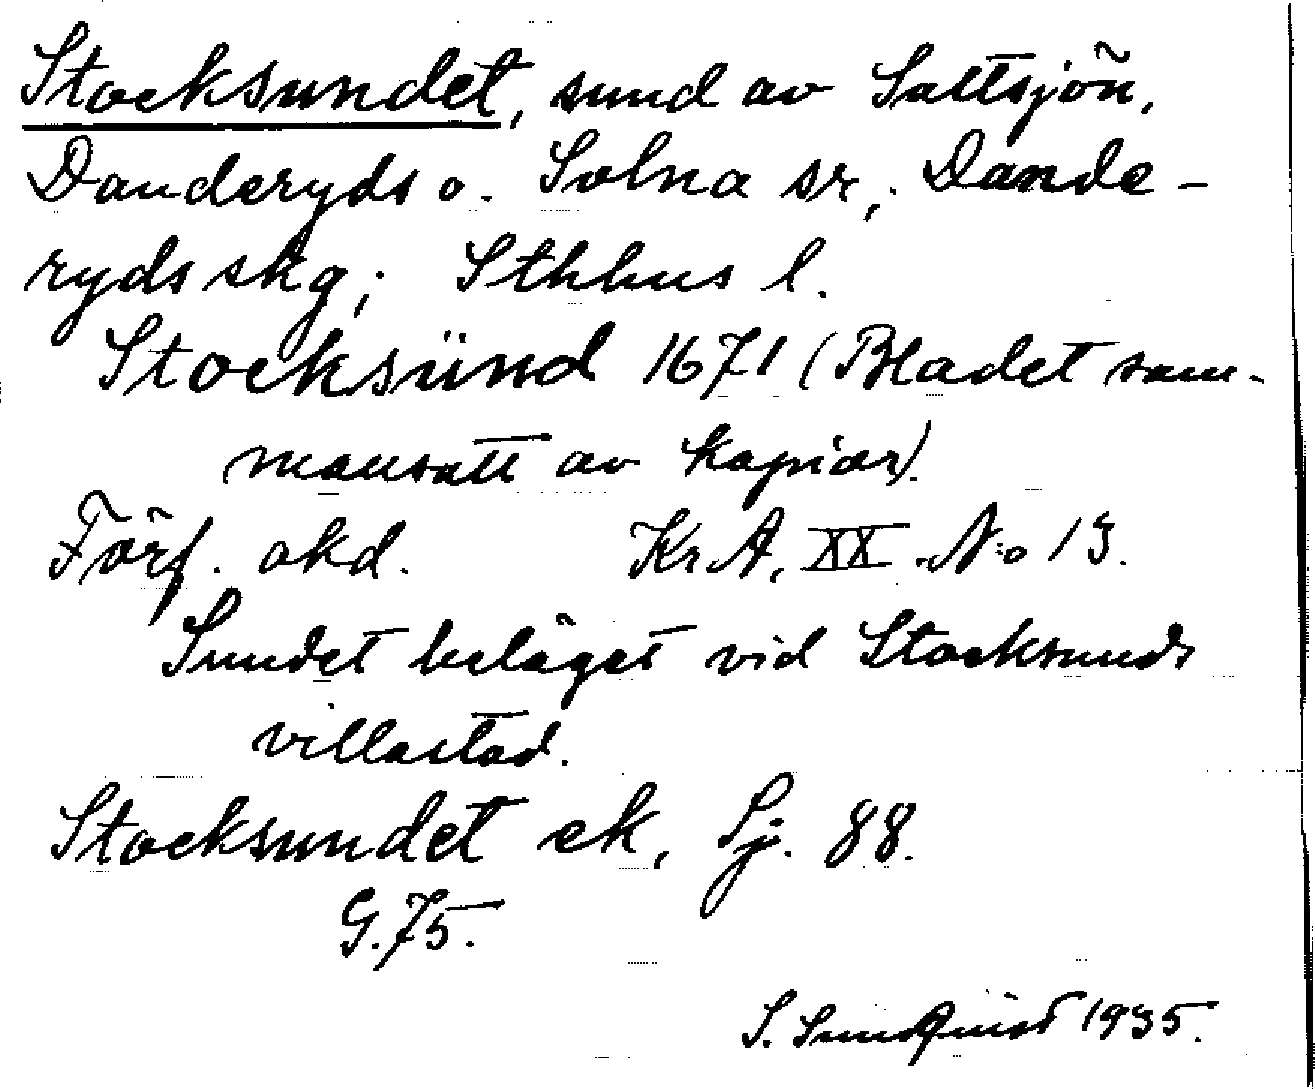 Stocksundet, sund av Saltsjön,
Danderyds o. Solna sr, Dande-
ryds skg; Sthlms l.
Stocksünd 1671 (Bladet sam-
mansatt av kopior).
Förf. okd. Kr.A. XX. No 13.
Sundet beläget vid Stocksunds
villastad.
Stocksundet ek, Sj. 88.
G.75.
S. Sundquist 1935.